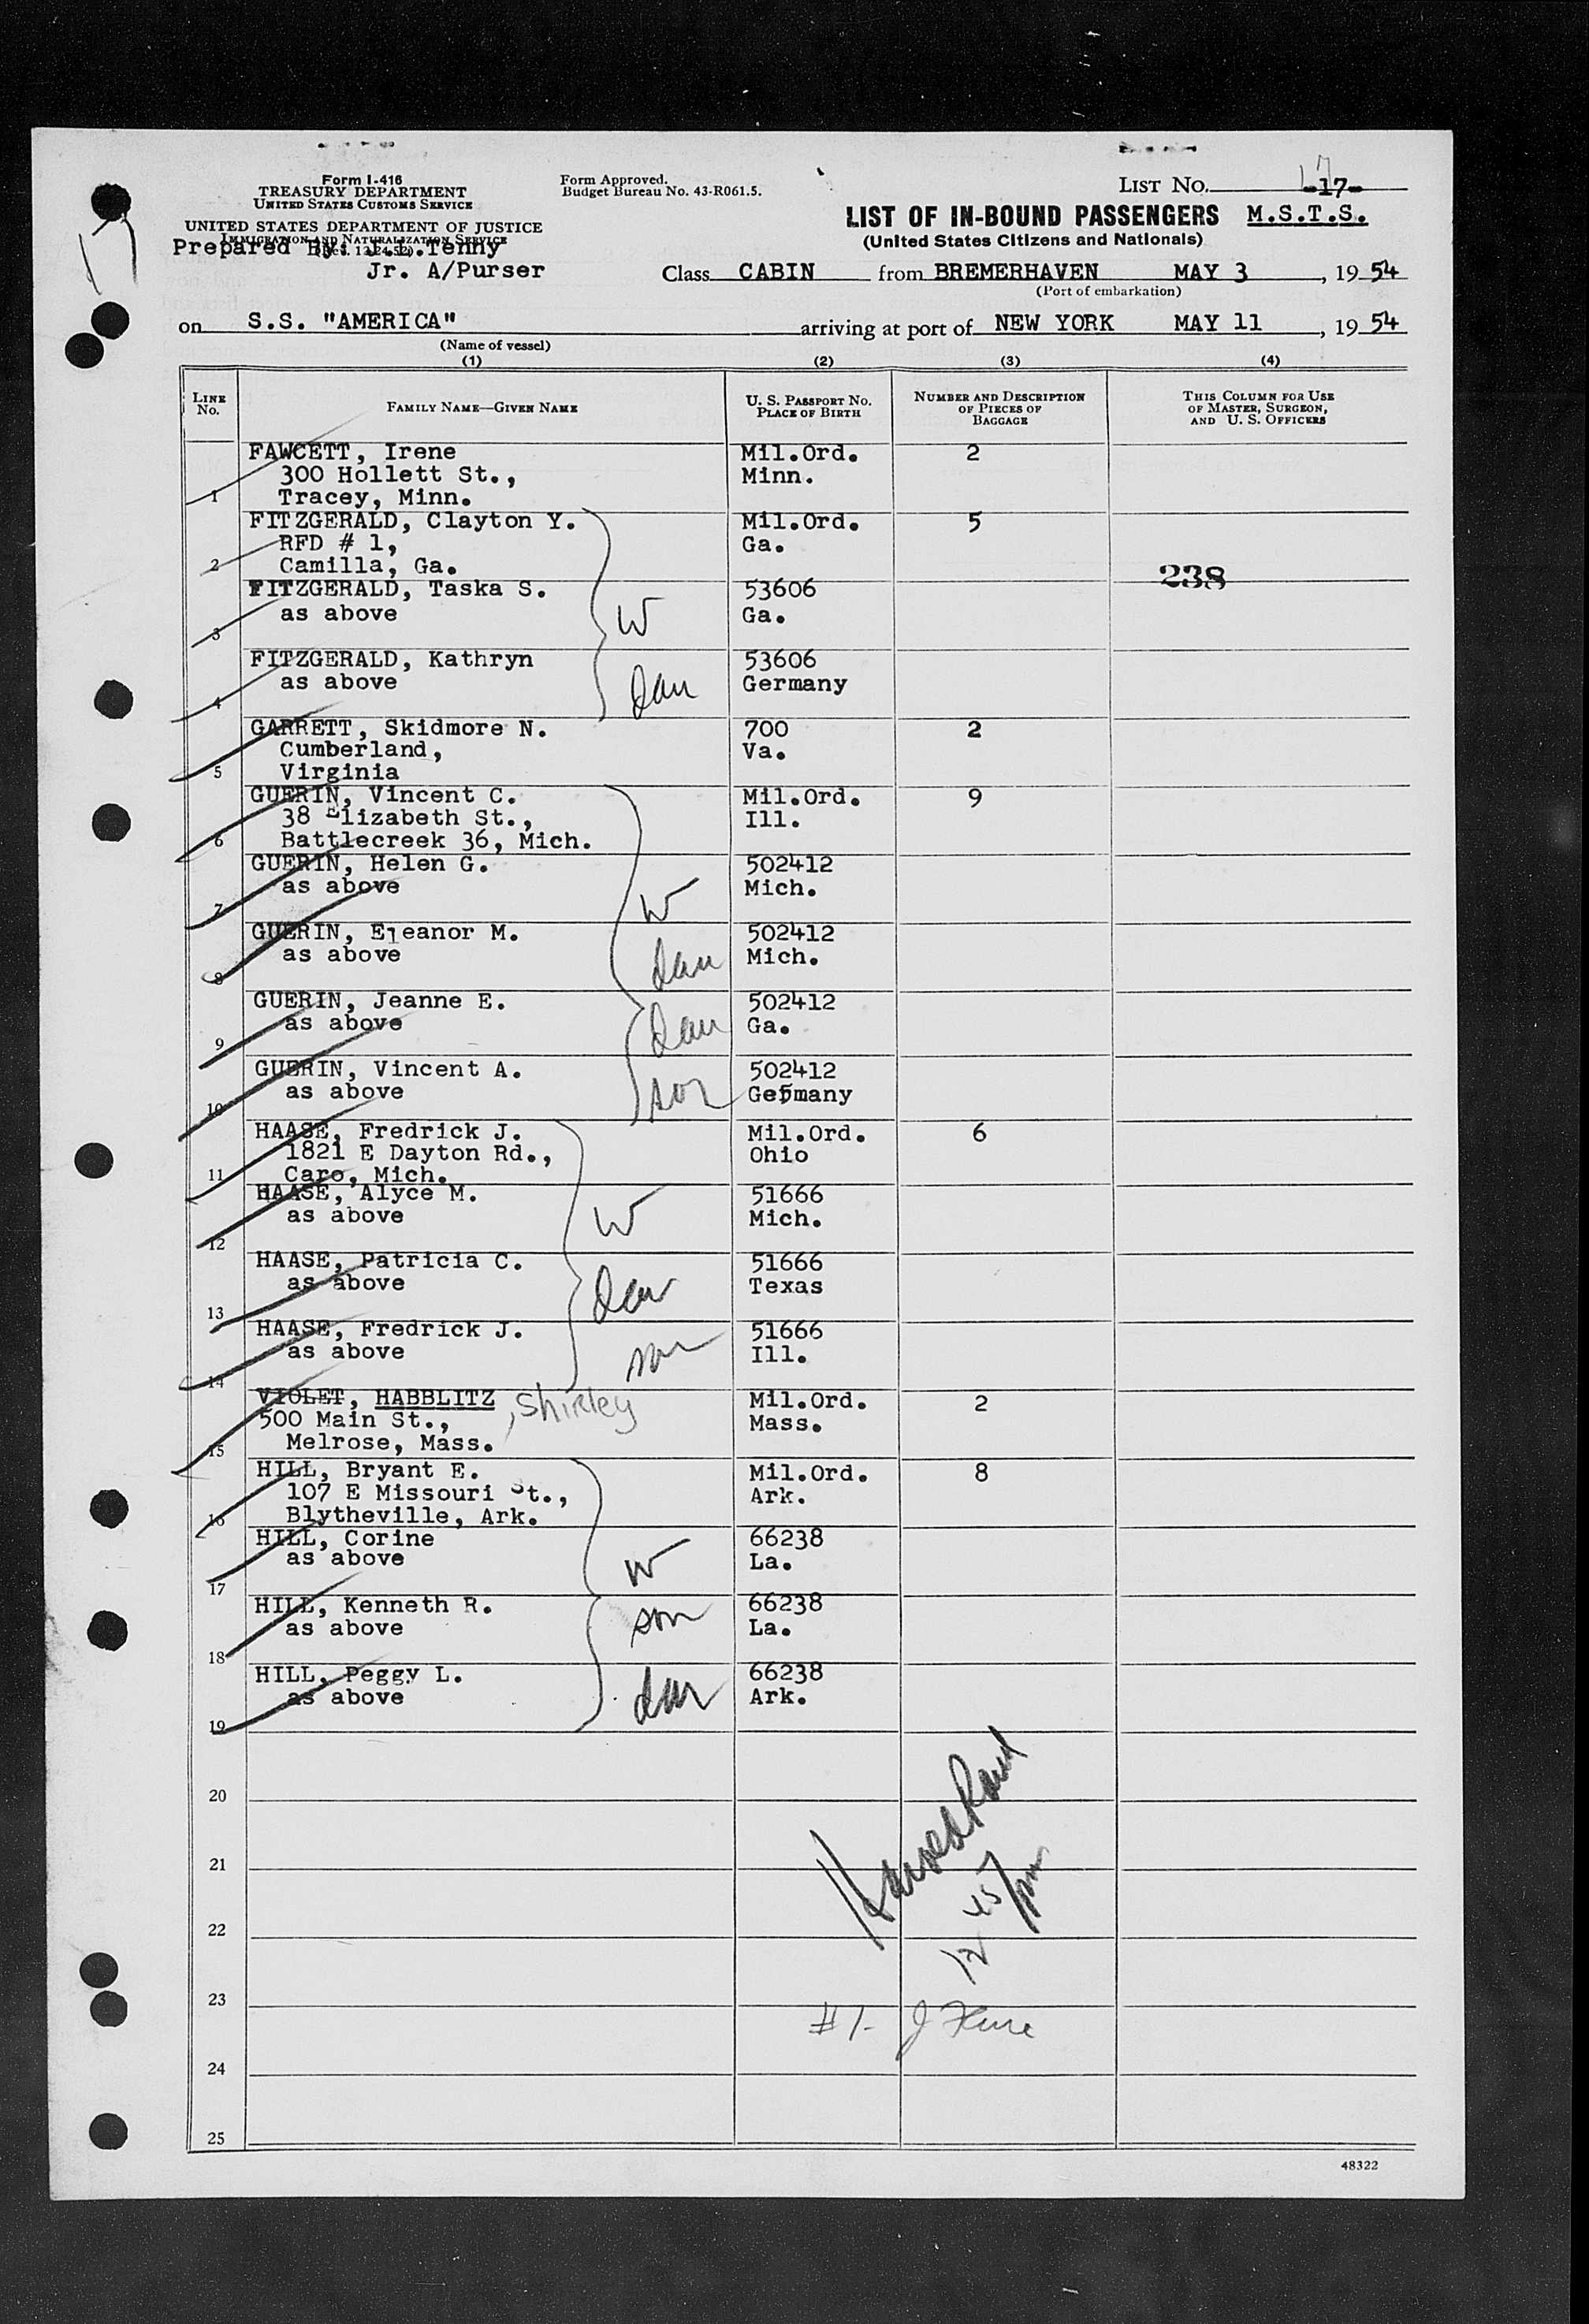 Form I-416
TREASURY DEPARTMENT
UNITED STATES CUSTOMS SERVICE
UNITED STATES DEPARTMENT OF JUSTICE
IMMIGRATION AND NATURALIZATION SERVICE
Prepared By: Tenny
Jr. A/Purser
Form Approved.
Budget Bureau No. 43-R061.5.
LIST No. 17 -17-
LIST OF IN-BOUND PASSENGERS M.S.T.S.
(United States Citizens and Nationals)
Class CABIN from BREMERHAVEN MAY 3, 1954
(Port of embarkation)
on S.S. "AMERICA" arriving at port of NEW YORK MAY 11, 1954
(Name of vessel)
(1) (2) (3) (4)
LINE No. FAMILY NAME—GIVEN NAME U. S. PASSPORT NO. PLACE OF BIRTH NUMBER AND DESCRIPTION OF PIECES OF BAGGAGE THIS COLUMN FOR USE OF MASTER, SURGEON, AND U. S. OFFICERS
FAWCETT, Irene Mil.Ord. 2
300 Hollett St., Minn.
1 Tracey, Minn.
FITZGERALD, Clayton Y. Mil.Ord. 5
RFD # 1, Ga.
2 Camilla, Ga.
238
FITZGERALD, Taska S. 53606
as above W Ga.
3
FITZGERALD, Kathryn 53606
as above dau Germany
4
GARRETT, Skidmore N. 700 2
Cumberland, Va.
5 Virginia
GUERIN, Vincent C. Mil.Ord. 9
38 Elizabeth St., Ill.
6 Battlecreek 36, Mich.
GUERIN, Helen G. 502412
as above W Mich.
7
GUERIN, Eleanor M. 502412
as above dau Mich.
8
GUERIN, Jeanne E. 502412
as above dau Ga.
9
GUERIN, Vincent A. 502412
as above son Germany
10
HAASE, Fredrick J. Mil.Ord. 6
1821 E Dayton Rd., Ohio
11 Caro, Mich.
HAASE, Alyce M. 51666
as above W Mich.
12
HAASE, Patricia C. 51666
as above dau Texas
13
HAASE, Fredrick J. 51666
as above son Ill.
14
VIOLET, HABBLITZ , Shirley Mil.Ord. 2
500 Main St., Mass.
15 Melrose, Mass.
HILL, Bryant E. Mil.Ord. 8
107 E Missouri St., Ark.
16 Blytheville, Ark.
HILL, Corine 66238
as above W La.
17
HILL, Kenneth R. 66238
as above son La.
18
HILL, Peggy L. 66238
as above dau Ark.
19
20
21
22
12 45 pm
23
#1- J
24
25
48322